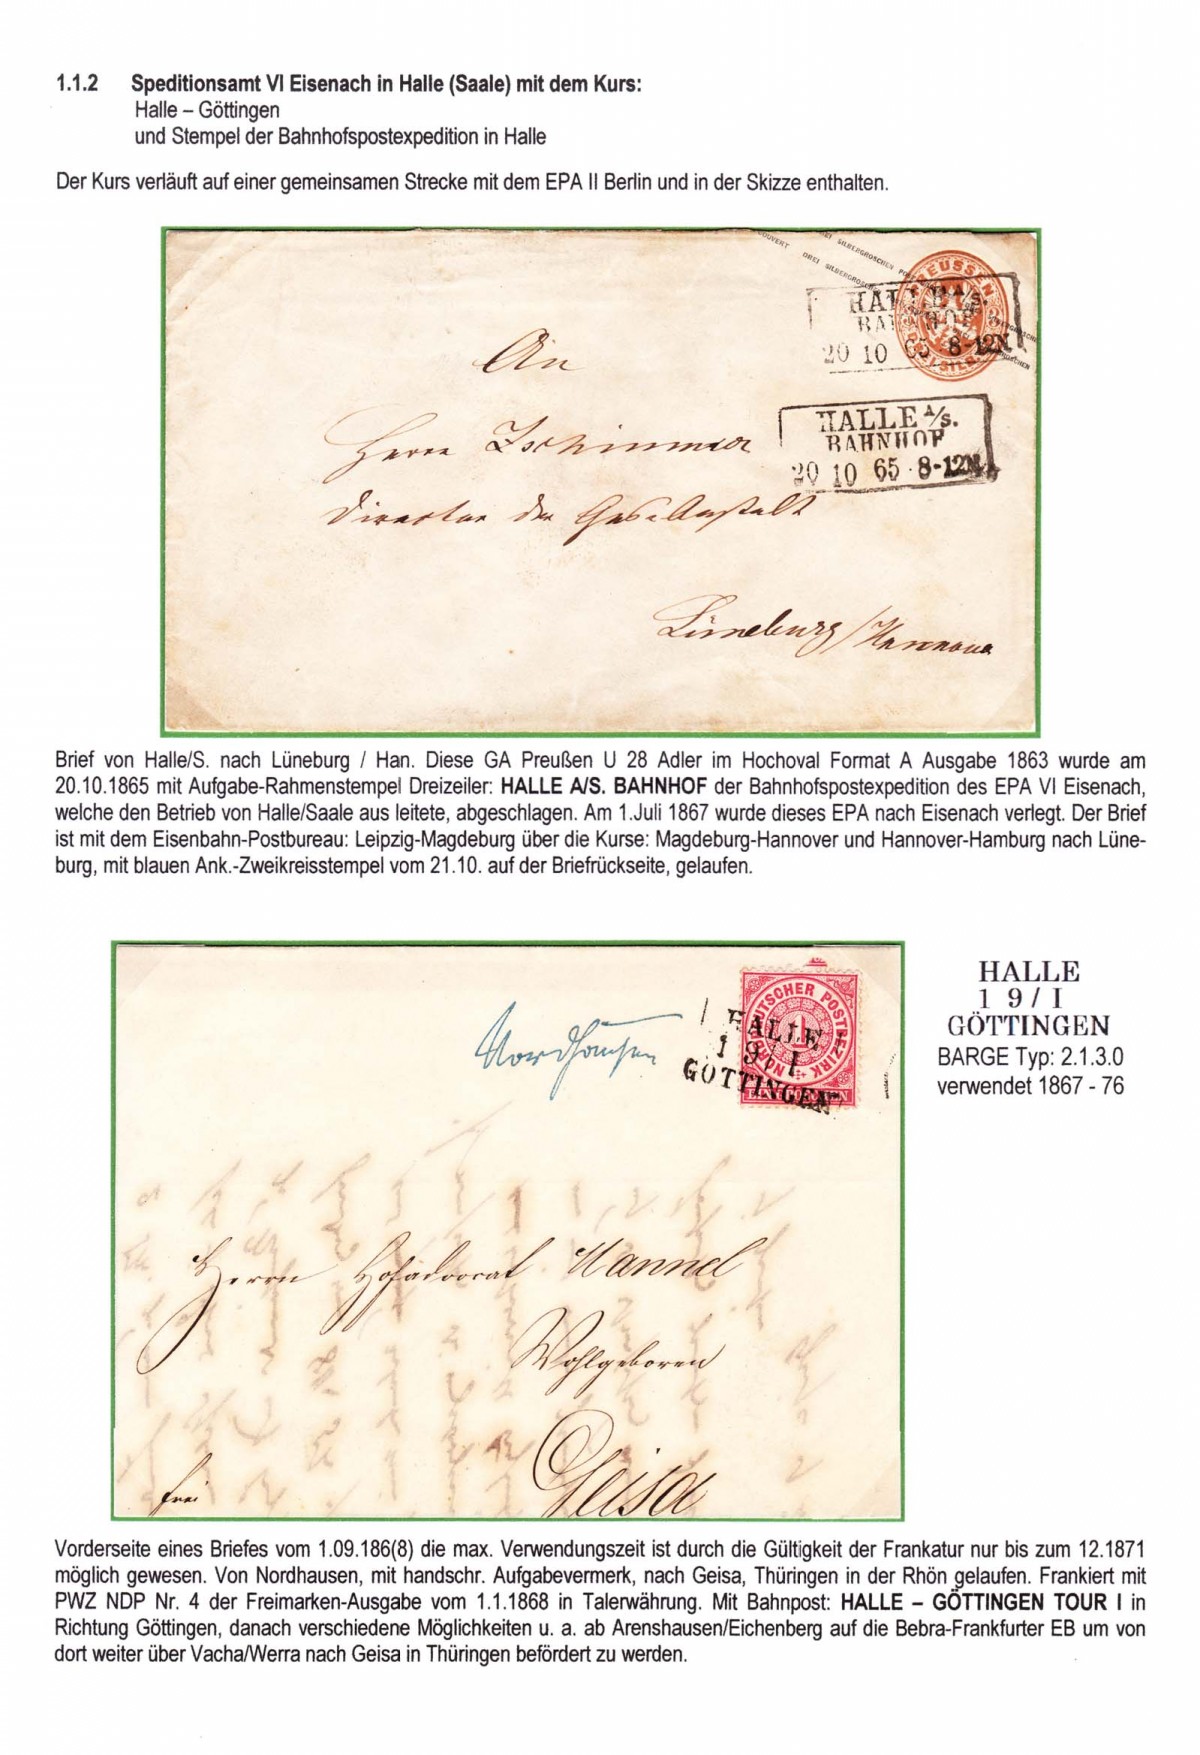 1.1.2 Speditionsamt VI Eisenach in Halle (Saale) mit dem Kurs:
Halle – Göttingen
und Stempel der Bahnhofspostexpedition in Halle
Der Kurs verläuft auf einer gemeinsamen Strecke mit dem EPA II Berlin und in der Skizze enthalten.
COUVERT DREI SILBERGROSCHEN POST
DREI SILBERGROSCHEN
PREUSSEN
HALLE A/S.
BAHNHOF
20 10 65 8-12N
An
HALLE A/S.
BAHNHOF
20 10 65 8-12N
Herrn Zschimmer
Director der Gas-Anstalt
Lüneburg/Hannover
Brief von Halle/S. nach Lüneburg / Han. Diese GA Preußen U 28 Adler im Hochoval Format A Ausgabe 1863 wurde am
20.10.1865 mit Aufgabe-Rahmenstempel Dreizeiler: HALLE A/S. BAHNHOF der Bahnhofspostexpedition des EPA VI Eisenach,
welche den Betrieb von Halle/Saale aus leitete, abgeschlagen. Am 1.Juli 1867 wurde dieses EPA nach Eisenach verlegt. Der Brief
ist mit dem Eisenbahn-Postbureau: Leipzig-Magdeburg über die Kurse: Magdeburg-Hannover und Hannover-Hamburg nach Lüne-
burg, mit blauen Ank.-Zweikreisstempel vom 21.10. auf der Briefrückseite, gelaufen.
NORDDEUTSCHER POSTBEZIRK
1
HALLE
1 9 I
GÖTTINGEN
Nordhausen
HALLE
1 9 / I
GÖTTINGEN
BARGE Typ: 2.1.3.0
verwendet 1867 - 76
Herrn Hofadvocat Mannel
Wohlgeboren
Geisa
frei
Vorderseite eines Briefes vom 1.09.186(8) die max. Verwendungszeit ist durch die Gültigkeit der Frankatur nur bis zum 12.1871
möglich gewesen. Von Nordhausen, mit handschr. Aufgabevermerk, nach Geisa, Thüringen in der Rhön gelaufen. Frankiert mit
PWZ NDP Nr. 4 der Freimarken-Ausgabe vom 1.1.1868 in Talerwährung. Mit Bahnpost: HALLE – GÖTTINGEN TOUR I in
Richtung Göttingen, danach verschiedene Möglichkeiten u. a. ab Arenshausen/Eichenberg auf die Bebra-Frankfurter EB um von
dort weiter über Vacha/Werra nach Geisa in Thüringen befördert zu werden.